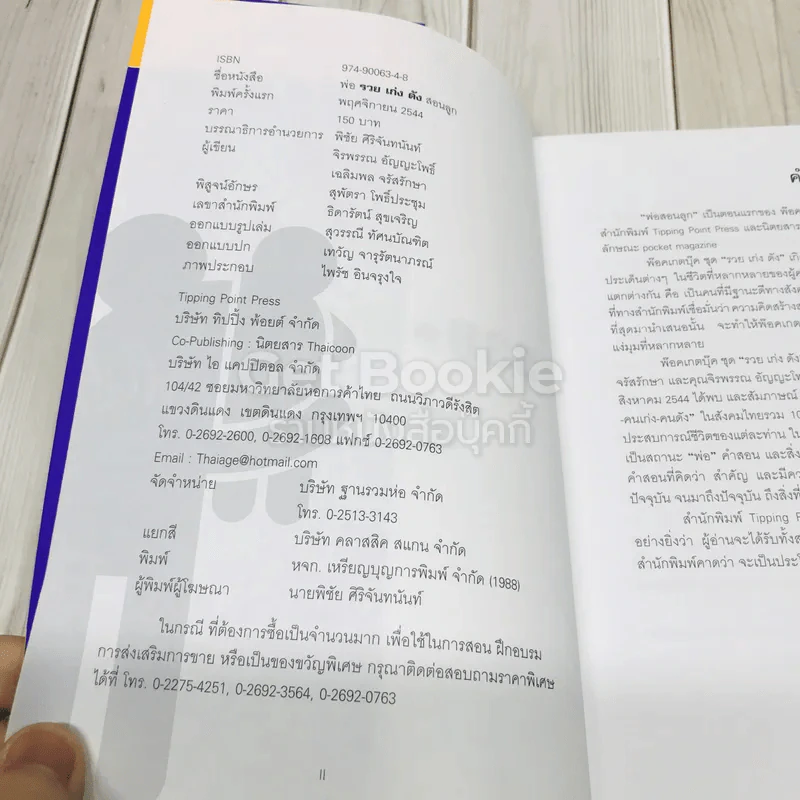 ISBN 974-90063-4-8
ชื่อหนังสือ พ่อ รวย เก่ง ดัง สอนลูก
พิมพ์ครั้งแรก พฤศจิกายน 2544
ราคา 150 บาท
บรรณาธิการอำนวยการ พิชัย ศิริจันทนันท์
ผู้เขียน จิรพรรณ อัญญะโพธิ์
เฉลิมพล จรัสรักษา
พิสูจน์อักษร สุพัตรา โพธิ์ประชุม
เลขาสำนักพิมพ์ ธิดารัตน์ สุขเจริญ
ออกแบบรูปเล่ม สุวรรณี ทัศนบัณฑิต
ออกแบบปก เทวัญ จารุรัตนาภรณ์
ภาพประกอบ ไพรัช อินจรุงใจ
Tipping Point Press
บริษัท ทิปปิ้ง พ้อยต์ จำกัด
Co-Publishing : นิตยสาร Thaicoon
บริษัท ไอ แคปปิตอล จำกัด
104/42 ซอยมหาวิทยาลัยหอการค้าไทย ถนนวิภาวดีรังสิต
แขวงดินแดง เขตดินแดง กรุงเทพฯ 10400
โทร. 0-2692-2600, 0-2692-1608 แฟกซ์ 0-2692-0763
Email : Thaiage@hotmail.com
จัดจำหน่าย บริษัท ฐานรวมห่อ จำกัด
โทร. 0-2513-3143
แยกสี บริษัท คลาสสิค สแกน จำกัด
พิมพ์ หจก. เหรียญบุญการพิมพ์ จำกัด (1988)
ผู้พิมพ์ผู้โฆษณา นายพิชัย ศิริจันทนันท์
ในกรณี ที่ต้องการซื้อเป็นจำนวนมาก เพื่อใช้ในการสอน ฝึกอบรม
การส่งเสริมการขาย หรือเป็นของขวัญพิเศษ กรุณาติดต่อสอบถามราคาพิเศษ
ได้ที่ โทร. 0-2275-4251, 0-2692-3564, 0-2692-0763
II
"พ่อสอนลูก" เป็นตอนแรกของ พ๊อค
สำนักพิมพ์ Tipping Point Press และนิตยสาร
ลักษณะ pocket magazine
พ๊อคเกตบุ๊ค ชุด "รวย เก่ง ดัง" เกิ
ประเด็นต่างๆ ในชีวิตที่หลากหลายของผู้ค
แตกต่างกัน คือ เป็นคนที่มีฐานะดีทางสังค
ที่ทางสำนักพิมพ์เชื่อมั่นว่า ความคิดสร้างส
ที่สุดมานำเสนอนั้น จะทำให้พ๊อคเกต
แง่มุมที่หลากหลาย
พ๊อคเกตบุ๊ค ชุด "รวย เก่ง ดัง
จรัสรักษา และคุณจิรพรรณ อัญญะโพ
สิงหาคม 2544 ได้พบ และสัมภาษณ์
-คนเก่ง-คนดัง" ในสังคมไทยรวม 10
ประสบการณ์ชีวิตของแต่ละท่าน ใน
เป็นสถานะ "พ่อ" คำสอน และสิ่ง
คำสอนที่คิดว่า สำคัญ และมีคว
ปัจจุบัน จนมาถึงปัจจุบัน ถึงสิ่งที่
สำนักพิมพ์ Tipping P
อย่างยิ่งว่า ผู้อ่านจะได้รับทั้งส
สำนักพิมพ์คาดว่า จะเป็นประโ
Get Bookie
ร้านหนังสือบุคกี้